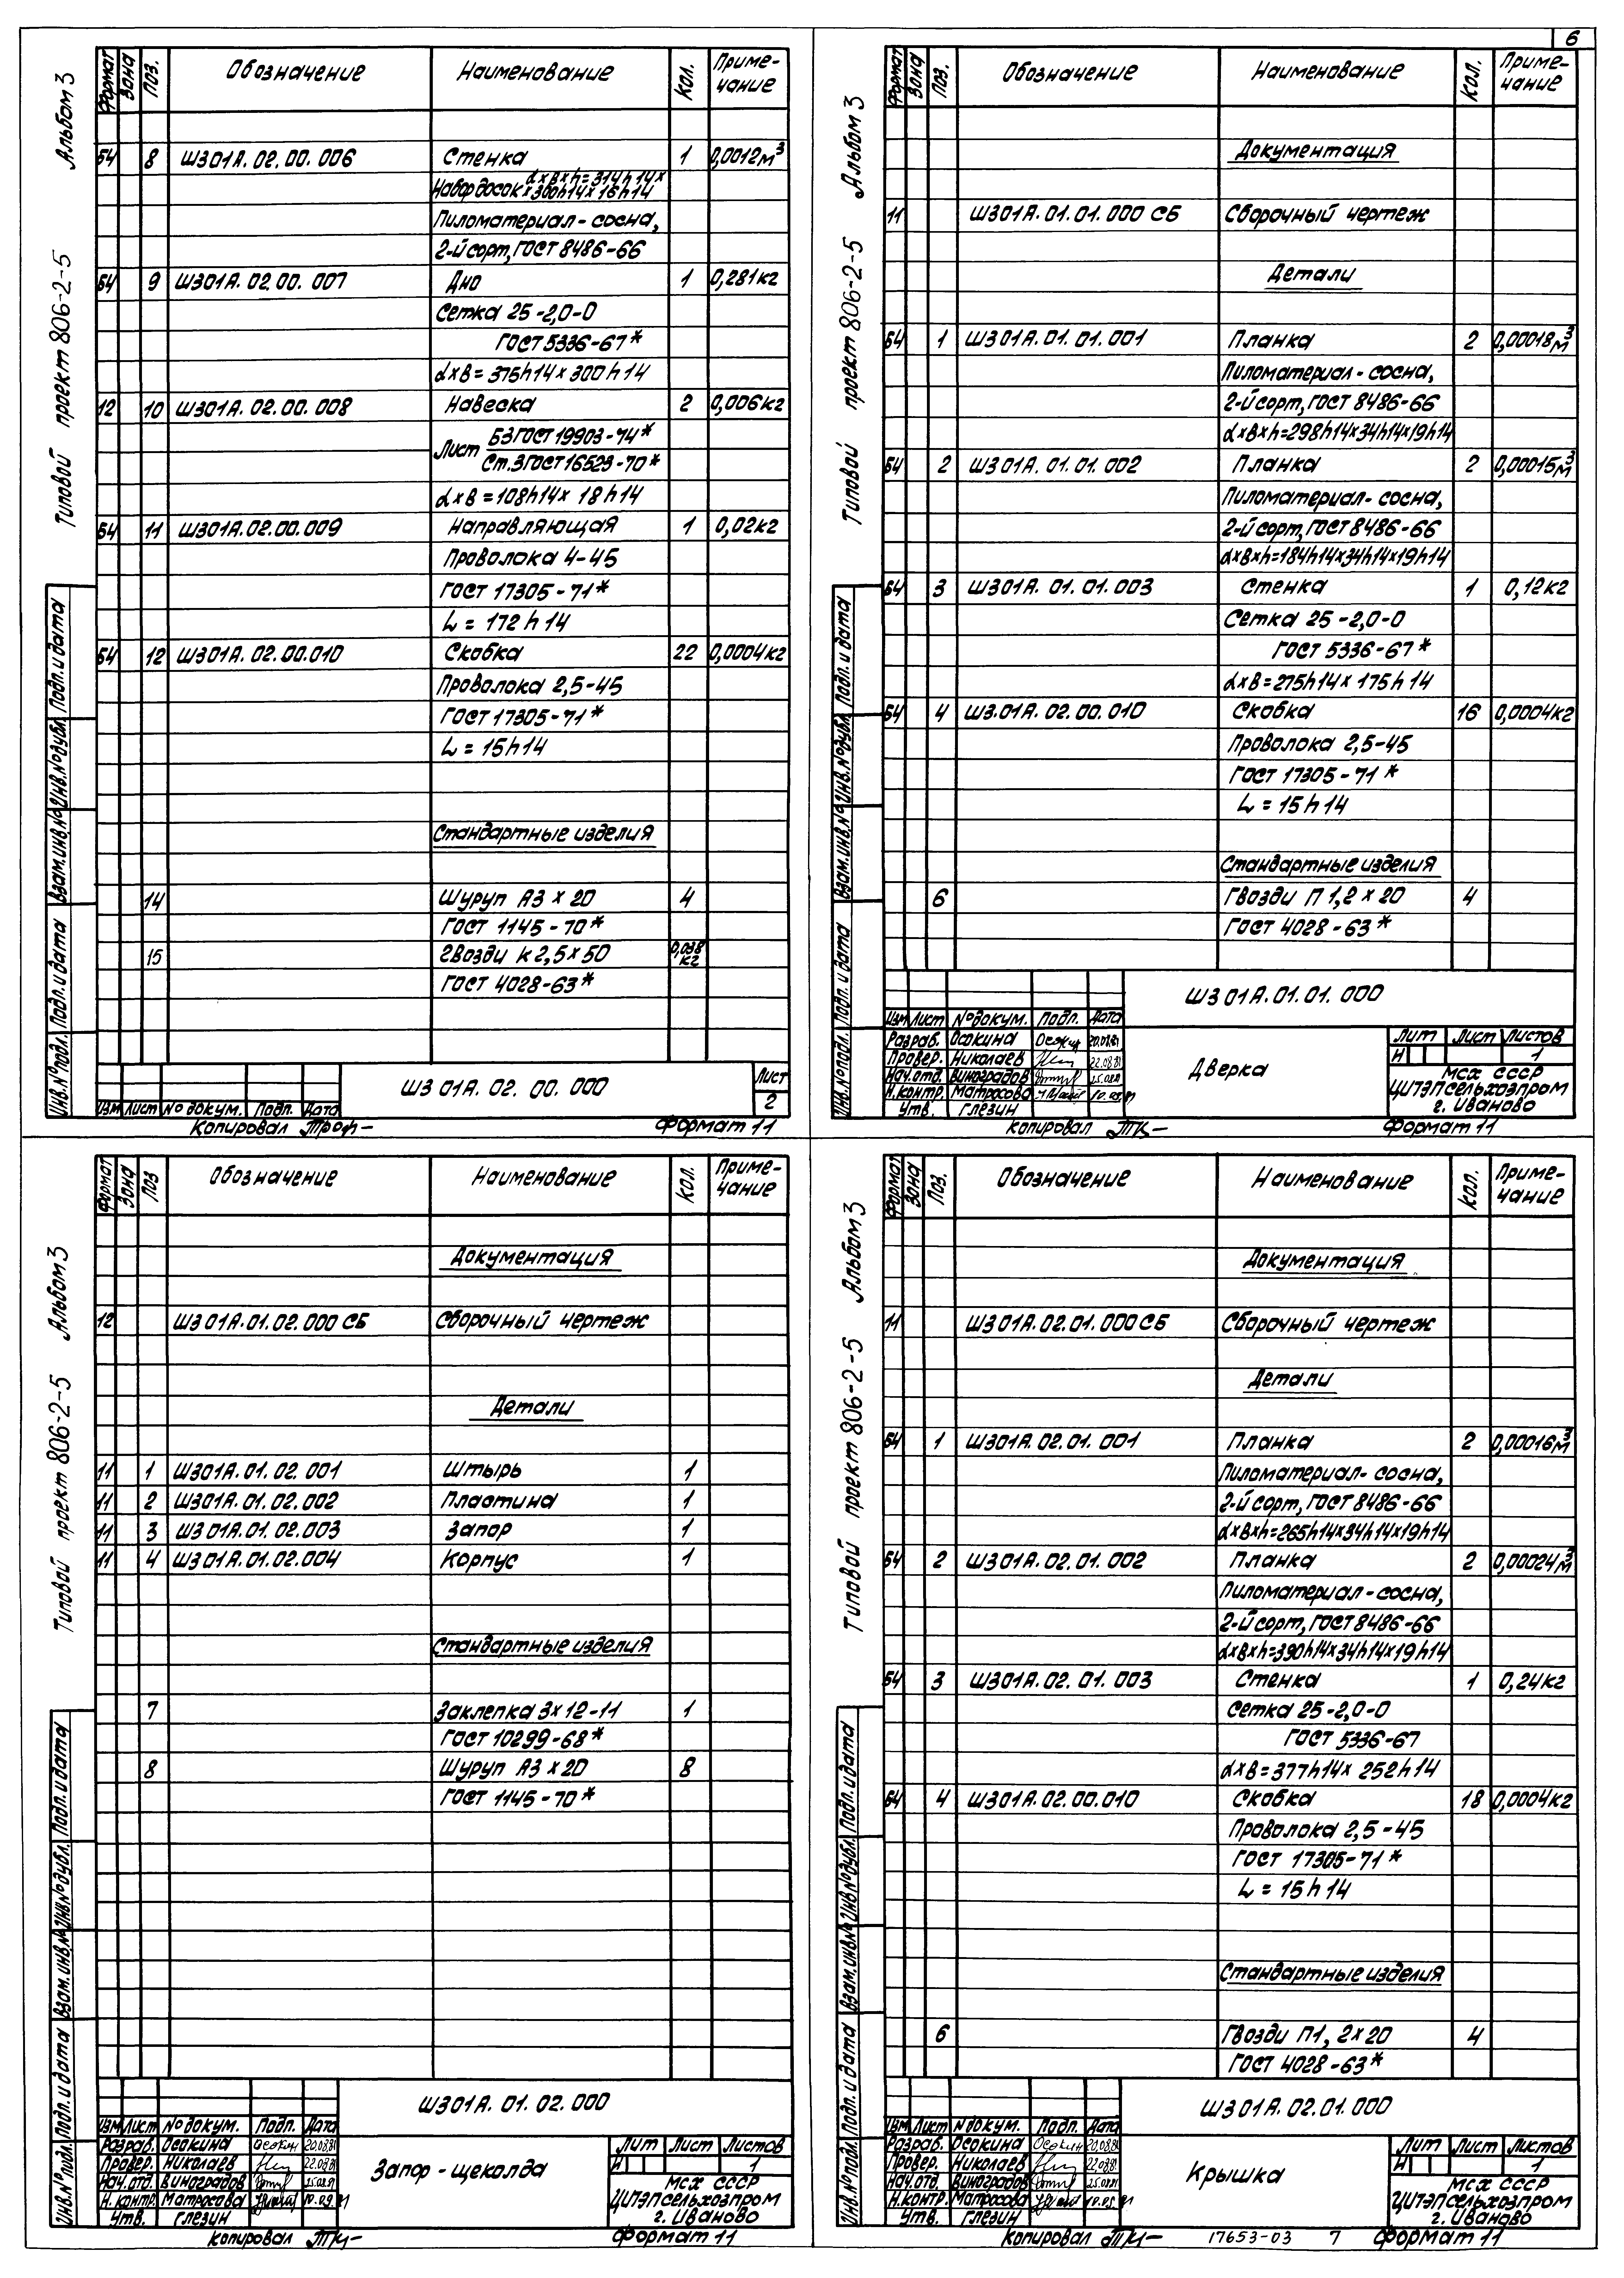 6
Типовой проект 806-2-5 Альбом 3
Формат Зона Поз. Обозначение Наименование Кол. Приме-
чание
54 8 ШЗ01А.02.00.006 Стенка 1 0,0012м³
αхвхh=314h14х
Набор досок х300h14х16h14
Пиломатериал-сосна,
2-й сорт, ГОСТ 8486-66
54 9 ШЗ01А.02.00.007 Дно 1 0,281кг
Сетка 25-2,0-0
ГОСТ 5336-67*
αхв=375h14х300h14
12 10 ШЗ01А.02.00.008 Навеска 2 0,006кг
Лист Б3ГОСТ 19903-74*
Ст.3ГОСТ16523-70*
αхв=108h14х18h14
54 11 ШЗ01А.02.00.009 Направляющая 1 0,02кг
Проволока 4-45
ГОСТ 17305-71*
L=172h14
54 12 ШЗ01А.02.00.010 Скобка 22 0,0004кг
Проволока 2,5-45
ГОСТ 17305-71*
L=15h14
Стандартные изделия
14 Шуруп А3х20 4
ГОСТ 1145-70*
15 гвозди К2,5х50 0,038
кг
ГОСТ 4028-63*
Инв.№подл. Подп. и дата Взам.инв.№ Инв.№дубл. Подп. и дата
Изм Лист №докум. Подп. Дата
ШЗ01А.02.00.000
Лист
2
Копировал
Формат 11
Типовой проект 806-2-5 Альбом 3
Формат Зона Поз. Обозначение Наименование Кол. Приме-
чание
Документация
11 ШЗ01А.01.01.000 СБ Сборочный чертеж
Детали
54 1 ШЗ01А.01.01.001 Планка 2 0,00018м³
Пиломатериал-сосна,
2-й сорт, ГОСТ 8486-66
αхвхh=298h14х34h14х19h14
54 2 ШЗ01А.01.01.002 Планка 2 0,00015м³
Пиломатериал-сосна,
2-й сорт, ГОСТ 8486-66
αхвхh=184h14х34h14х19h14
54 3 ШЗ01А.01.01.003 Стенка 1 0,12кг
Сетка 25-2,0-0
ГОСТ 5336-67*
αхв=275h14х175h14
54 4 ШЗ.01А.02.00.010 Скобка 16 0,0004кг
Проволока 2,5-45
ГОСТ 17305-71*
L=15h14
Стандартные изделия
6 Гвозди П 1,2х20 4
ГОСТ 4028-63*
Инв.№подл. Подп. и дата Взам.инв.№ Инв.№дубл. Подп. и дата
ШЗ01А.01.01.000
Изм Лист №докум. Подп. Дата
Разраб. Осокина 20.08.81
Провер. Николаев 22.08.81
Нач.отд. Виноградов 25.08.81
Н.контр. Матросова 10.09.81
Утв. Глезин
Дверка
Лит Лист Листов
И 1
МСХ СССР
ЦИТЭПсельхозпром
г. Иваново
Копировал
Формат 11
Типовой проект 806-2-5 Альбом 3
Формат Зона Поз Обозначение Наименование Кол. Приме-
чание
Документация
12 ШЗ01А.01.02.000 СБ Сборочный чертеж
Детали
11 1 ШЗ01А.01.02.001 Штырь 1
11 2 ШЗ01А.01.02.002 Пластина 1
11 3 ШЗ01А.01.02.003 Запор 1
11 4 ШЗ01А.01.02.004 Корпус 1
Стандартные изделия
7 Заклепка 3х12-11 1
ГОСТ 10299-68*
8 Шуруп А3х20 8
ГОСТ 1145-70*
Инв.№подл. Подп. и дата Взам.инв.№ Инв.№дубл. Подп. и дата
ШЗ01А.01.02.000
Изм Лист №докум. Подп. Дата
Разраб. Осокина 20.08.81
Провер. Николаев 22.08.81
Нач.отд. Виноградов 25.08.81
Н.контр. Матросова 10.09.81
Утв. Глезин
Запор-щеколда
Лит Лист Листов
И 1
МСХ СССР
ЦИТЭПсельхозпром
г. Иваново
Копировал
Формат 11
Типовой проект 806-2-5 Альбом 3
Формат Зона Поз. Обозначение Наименование Кол. Приме-
чание
Документация
11 ШЗ01А.02.01.000 СБ Сборочный чертеж
Детали
54 1 ШЗ01А.02.01.001 Планка 2 0,00016м³
Пиломатериал-сосна,
2-й сорт, ГОСТ 8486-66
αхвхh=265h14х34h14х19h14
54 2 ШЗ01А.02.01.002 Планка 2 0,00024м³
Пиломатериал-сосна,
2-й сорт, ГОСТ 8486-66
αхвхh=390h14х34h14х19h14
54 3 ШЗ01А.02.01.003 Стенка 1 0,24кг
Сетка 25-2,0-0
ГОСТ 5336-67
αхв=377h14х252h14
54 4 ШЗ01А.02.00.010 Скобка 18 0,0004кг
Проволока 2,5-45
ГОСТ 17305-71*
L=15h14
Стандартные изделия
6 Гвозди П1,2х20 4
ГОСТ 4028-63*
Инв.№подл. Подп. и дата Взам.инв.№ Инв.№дубл. Подп. и дата
ШЗ01А.02.01.000
Изм Лист №докум. Подп. Дата
Разраб. Осокина 20.08.81
Провер. Николаев 22.08.81
Нач.отд. Виноградов 25.08.81
Н.контр. Матросова 10.09.81
Утв. Глезин
Крышка
Лит Лист Листов
И 1
МСХ СССР
ЦИТЭПсельхозпром
г. Иваново
Копировал
17653-03 7 Формат 11